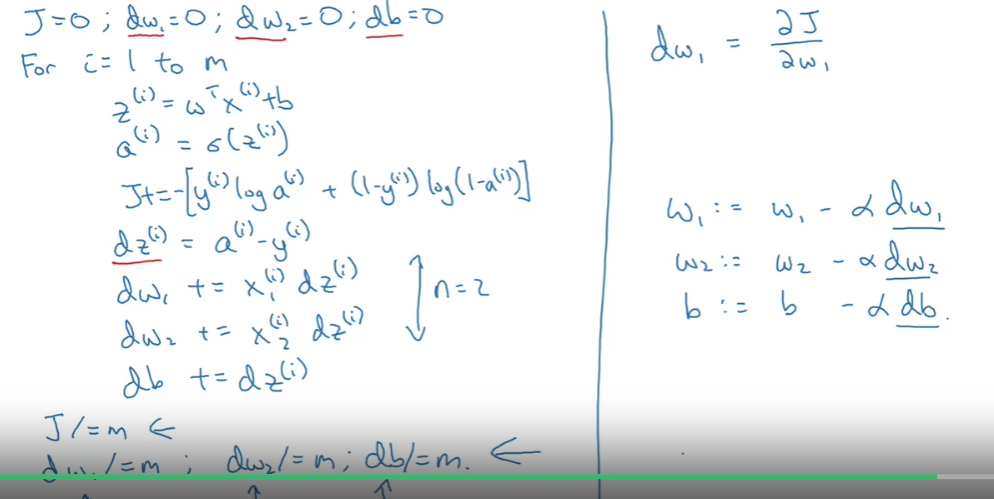 J=0 ; dw₁=0 ; dw₂=0 ; db=0
For i=1 to m
z⁽ⁱ⁾ = wᵀx⁽ⁱ⁾+b
a⁽ⁱ⁾ = σ(z⁽ⁱ⁾)
J+=-[y⁽ⁱ⁾ log a⁽ⁱ⁾ + (1-y⁽ⁱ⁾) log(1-a⁽ⁱ⁾)]
dz⁽ⁱ⁾ = a⁽ⁱ⁾-y⁽ⁱ⁾
dw₁ += x₁⁽ⁱ⁾ dz⁽ⁱ⁾
dw₂ += x₂⁽ⁱ⁾ dz⁽ⁱ⁾
n=2
db += dz⁽ⁱ⁾
J/=m ←
dw₁/=m ; dw₂/=m ; db/=m. ←
dw₁ = ∂J/∂w₁
w₁ := w₁ - α dw₁
w₂ := w₂ - α dw₂
b := b - α db.